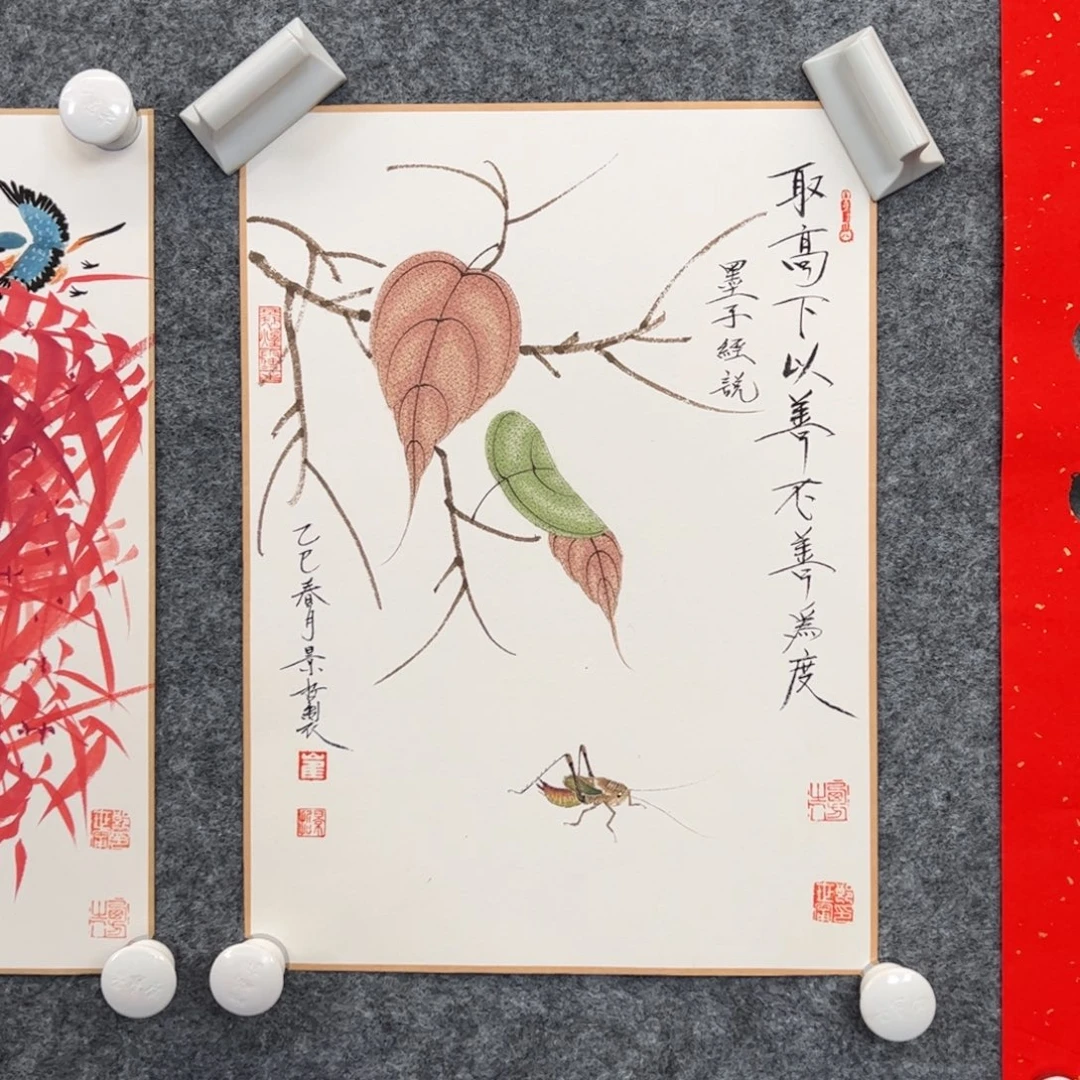 取高下以善不善為度
墨子經說
乙巳春月景
製